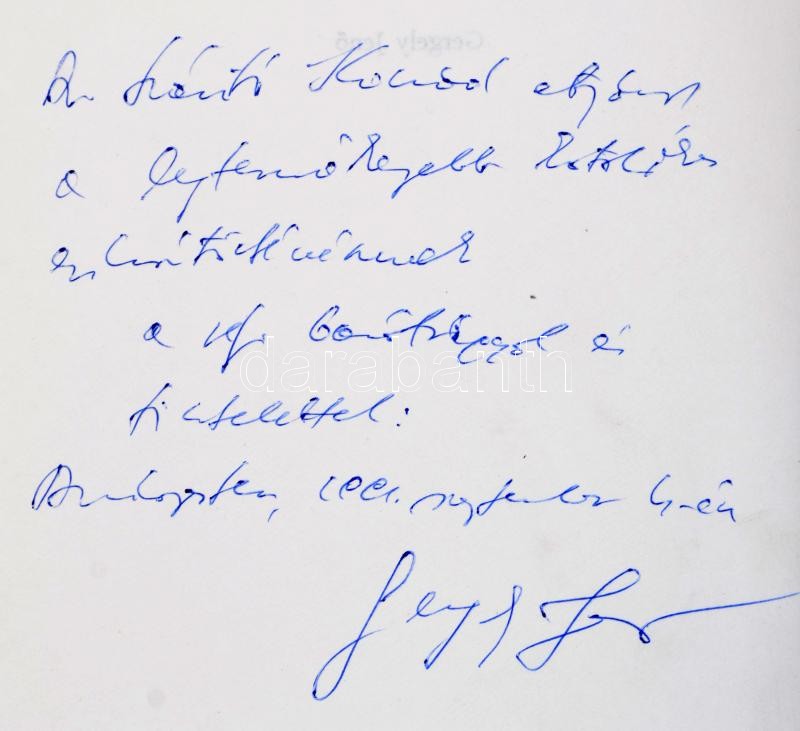 Gergely Jenő
Dr. Szántó Konrád atyának
a legtermékenyebb katolikus
egyháztörténésznek
a régi barátsággal és
tisztelettel:
Budapesten, 1991. szeptember 4-én
Gergely Jenő
darabanth